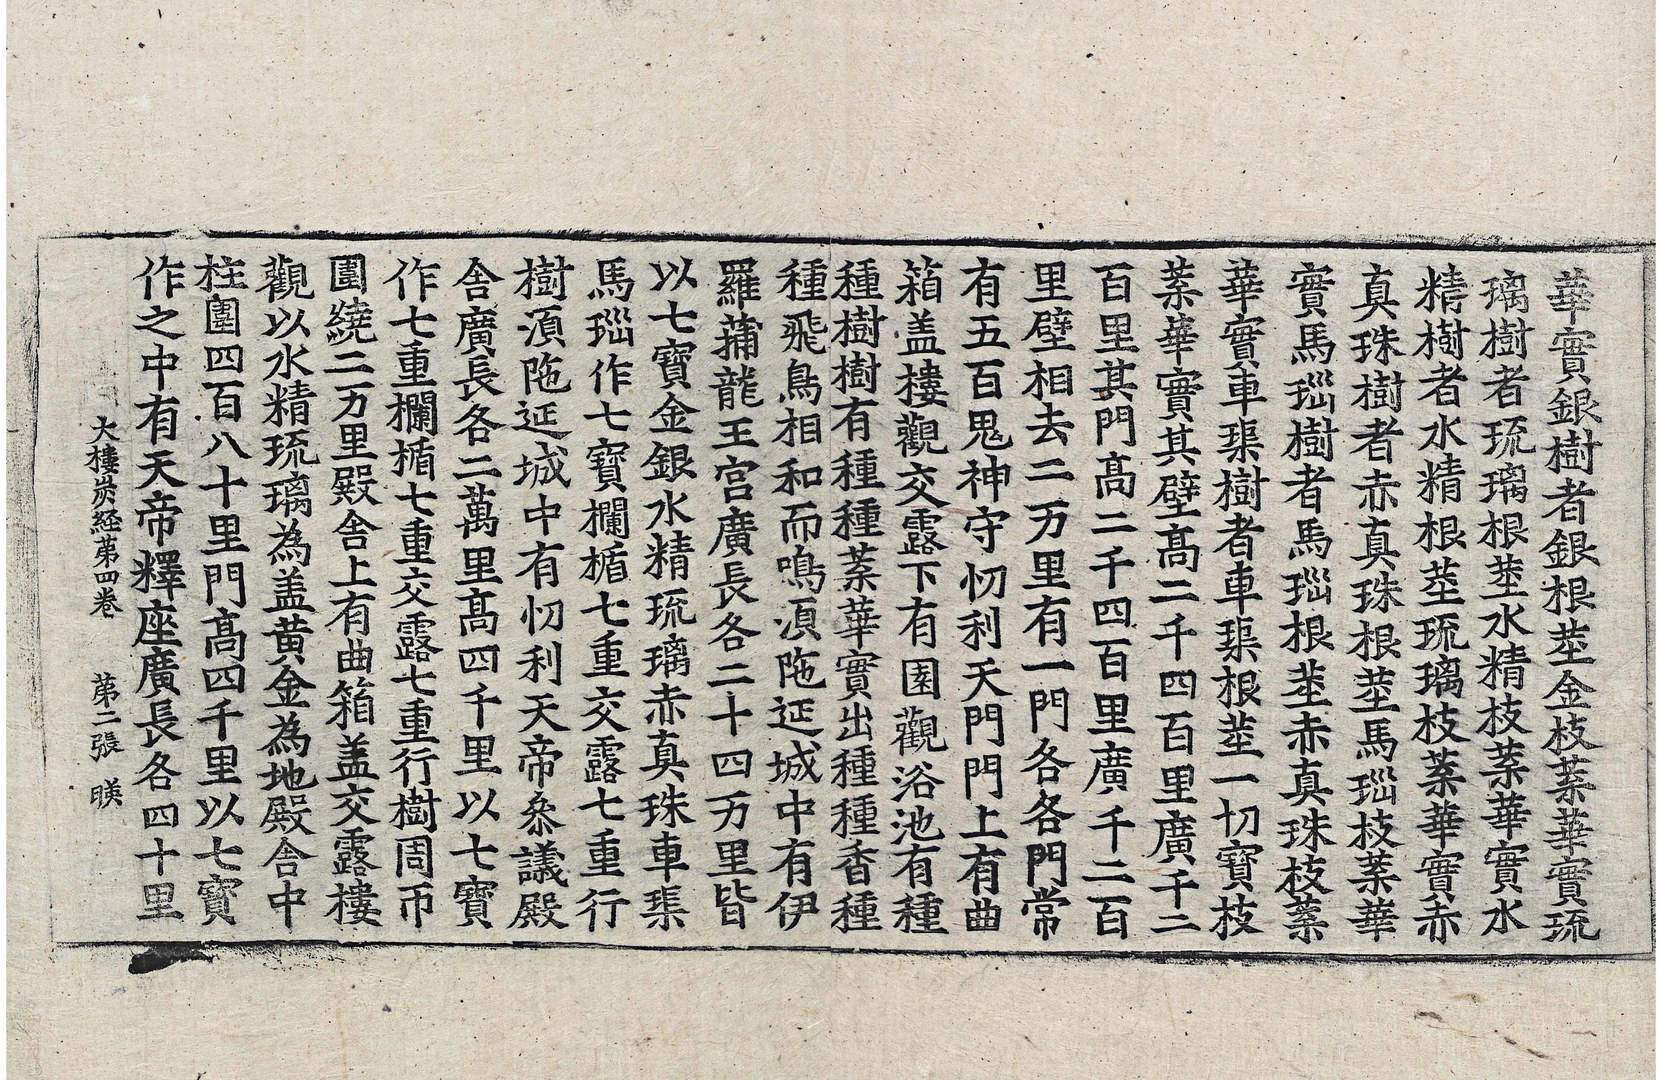 華實銀樹者銀根莖金枝葉華實琉
璃樹者琉璃根莖水精枝葉華實水
精樹者水精根莖琉璃枝葉華實赤
真珠樹者赤真珠根莖馬瑙枝葉華
實馬瑙樹者馬瑙根莖赤真珠枝葉
華實車𤦲樹者車𤦲根莖一切寶枝
葉華實其壁高二千四百里廣千二
百里其門高二千四百里廣千二百
里壁相去二万里有一門各各門常
有五百鬼神守忉利天門門上有曲
箱盖樓觀交露下有園觀浴池有種
種樹樹有種種葉華實出種種香種
種飛鳥相和而鳴湏陁延城中有伊
羅蒲龍王宮廣長各二十四万里皆
以七寶金銀水精琉璃赤真珠車𤦲
馬瑙作七寶欄楯七重交露七重行
樹湏陁延城中有忉利天帝叅議殿
舍廣長各二萬里高四千里以七寶
作七重欄楯七重交露七重行樹周帀
圍繞二万里殿舍上有曲箱盖交露樓
觀以水精琉璃為盖黄金為地殿舍中
柱圍四百八十里門高四千里以七寶
作之中有天帝釋座廣長各四十里
大樓炭経苐四卷 苐二張 暎